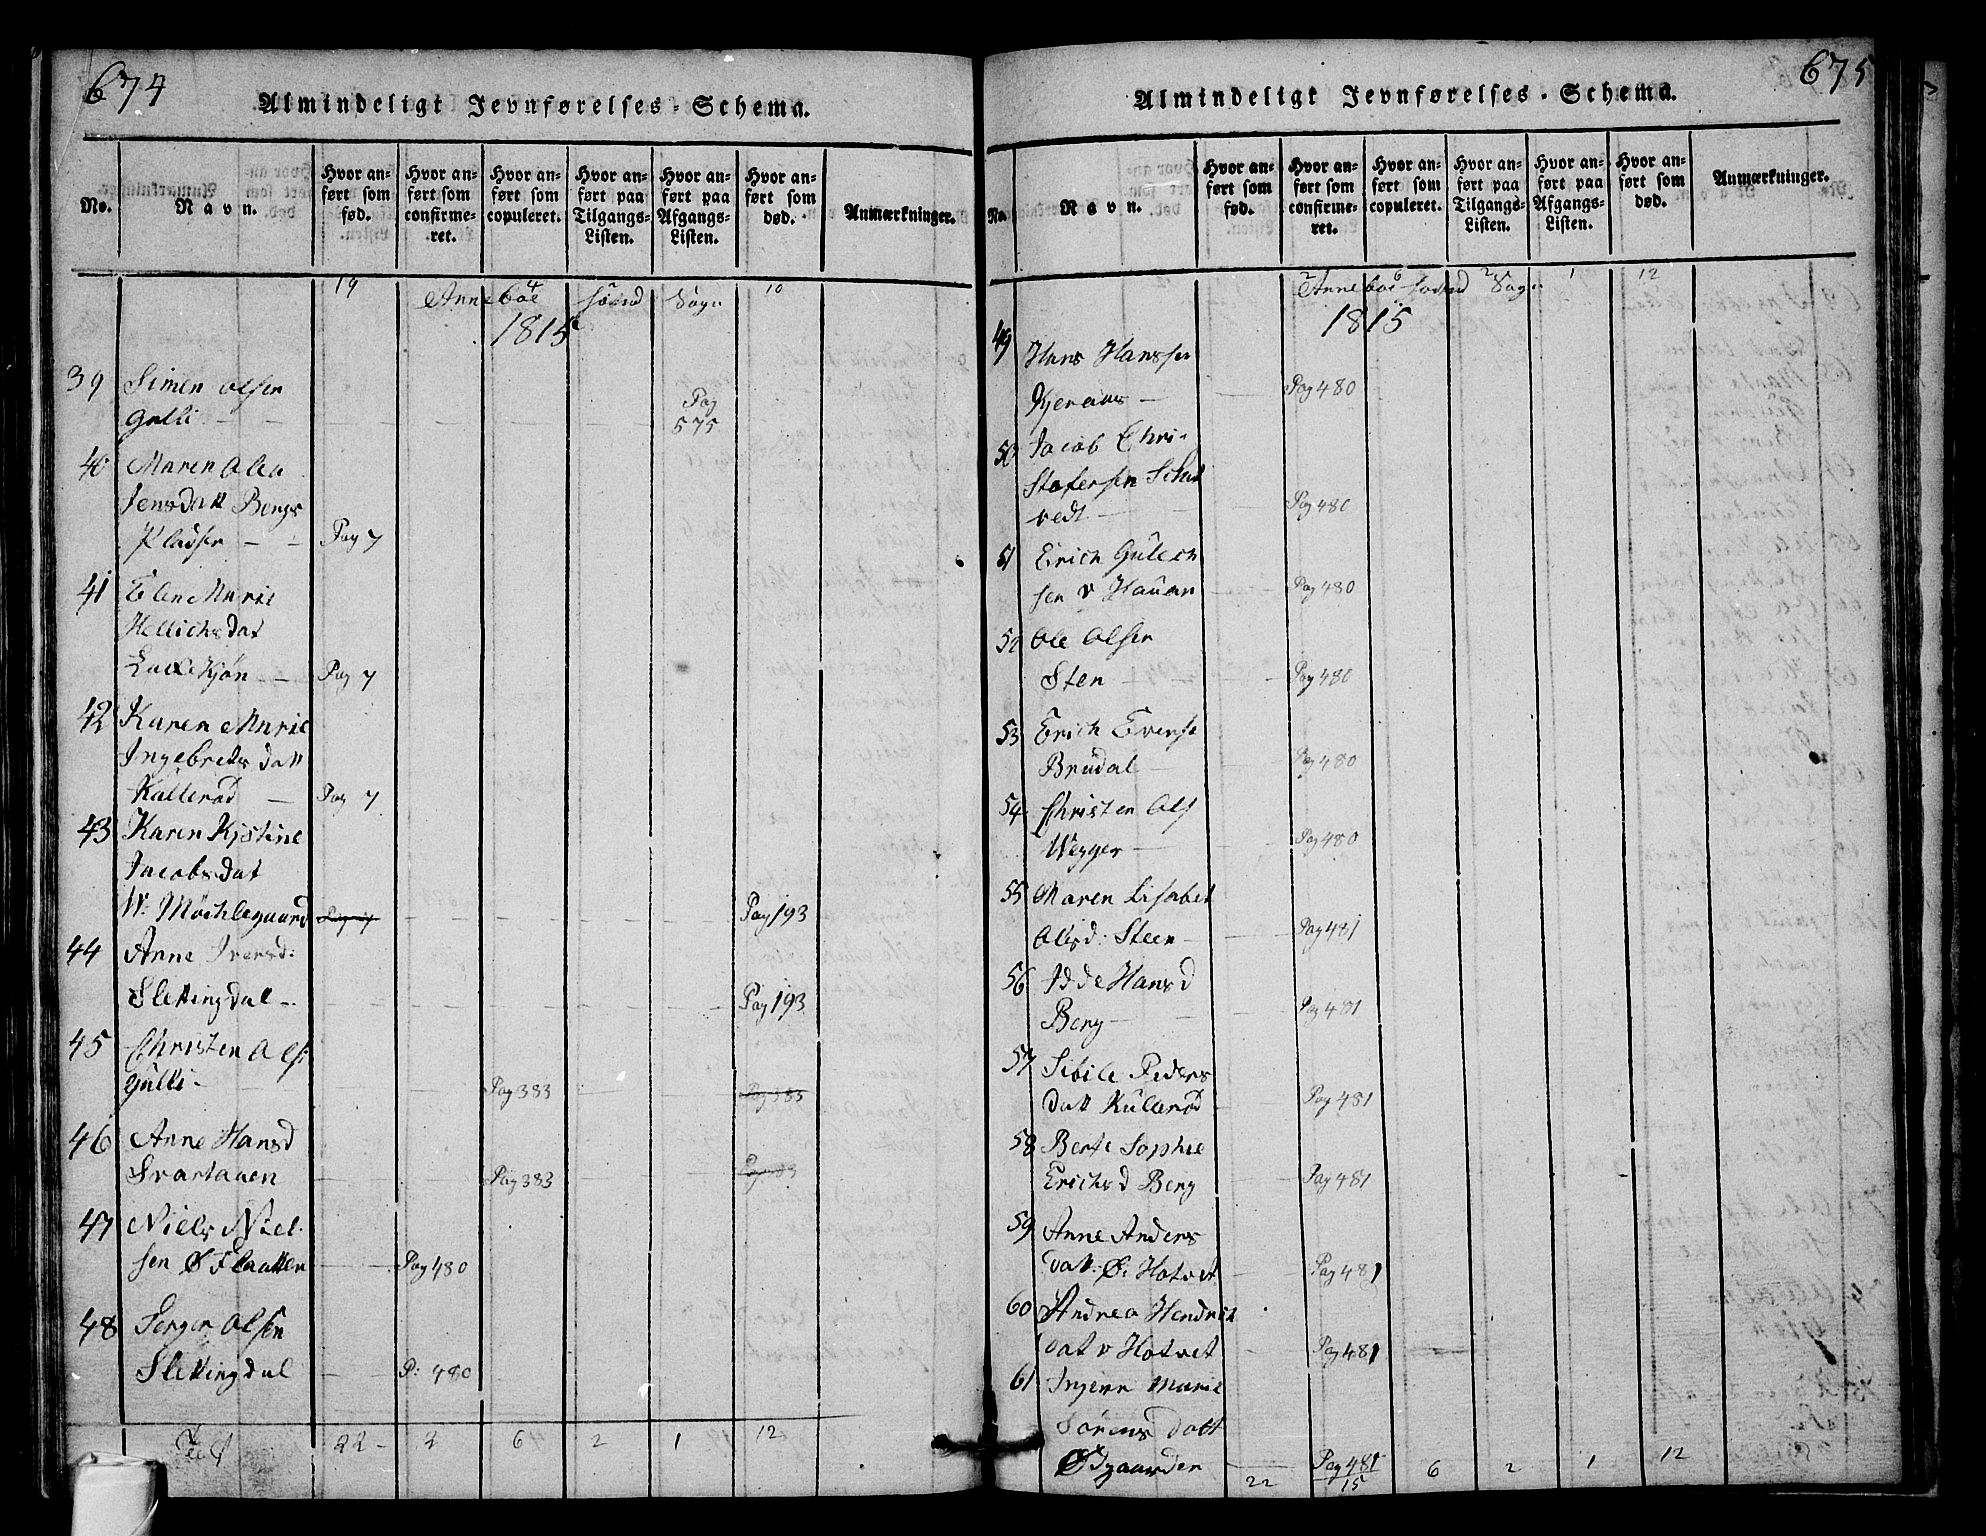 674
Almindeligt Jevnførelses-Schema.
No. Navn. Hvor anført som fød. Hvor anført som confirmeret. Hvor anført som copuleret. Hvor anført paa Tilgangs-Listen. Hvor anført paa Afgangs-Listen. Hvor anført som død. Anmærkninger.
19 4 2 10
Anneboe Sogn
1815
39 Simen Olsen
Gulli - Pag 575
40 Maren Olea
Jensdatt Bergs
Pladsen - Pag 7
41 Elen Marie
Hellichsdat
Pag 7
42 Karen Marie
Ingebretsdatt
Kallerød - Pag 7
43 Karen Kjstine
Jacobsdat
W: Möchlegaard Pag 7 Pag 193
44 Anne Iversd:
Slettingdal - Pag 193
45 Christen Ols
Gulli - Pag 383 Pag 383
46 Anne Hansd
Svartauen Pag 383
47 Niels Niel-
sen Ø Flaatten Pag 480
48 Jørgen Olsen
Slettingdal P: 480
22 - 2 6 2 1 12
675
Almindeligt Jevnførelses-Schema.
No. Navn. Hvor anført som fød. Hvor anført som confirmeret. Hvor anført som copuleret. Hvor anført paa Tilgangs-Listen. Hvor anført paa Afgangs-Listen. Hvor anført som død. Anmærkninger.
2 6 2 1 12
Anneboe Sogn
1815
49 Hans Hansen
Kjeraas - Pag 480
50 Jacob Chri-
stofersen Schul
vedt - Pag 480
51 Erich Gulech
sen v Hauan Pag 480
52 Ole Olsen
Sten - Pag 480
53 Erich Evense
Brudal - Pag 480
54 Christen Ols
Wegger - Pag 480
55 Maren Lisabet
Olesd: Steen - Pag 481
56 Idde Hansd
Berg - Pag 481
57 Sibile Peders
datt Kulerød Pag 481
58 Berte Sophie
Erichsd Berg Pag 481
59 Anne Anders
datt: Ø: Hotvet Pag 481
60 Andrea Hendrich
dat v Hotvet Pag 481
61 Ingeun Marie
Sørens datt
Ødgaarden Pag 481
22 15 6 2 1 12